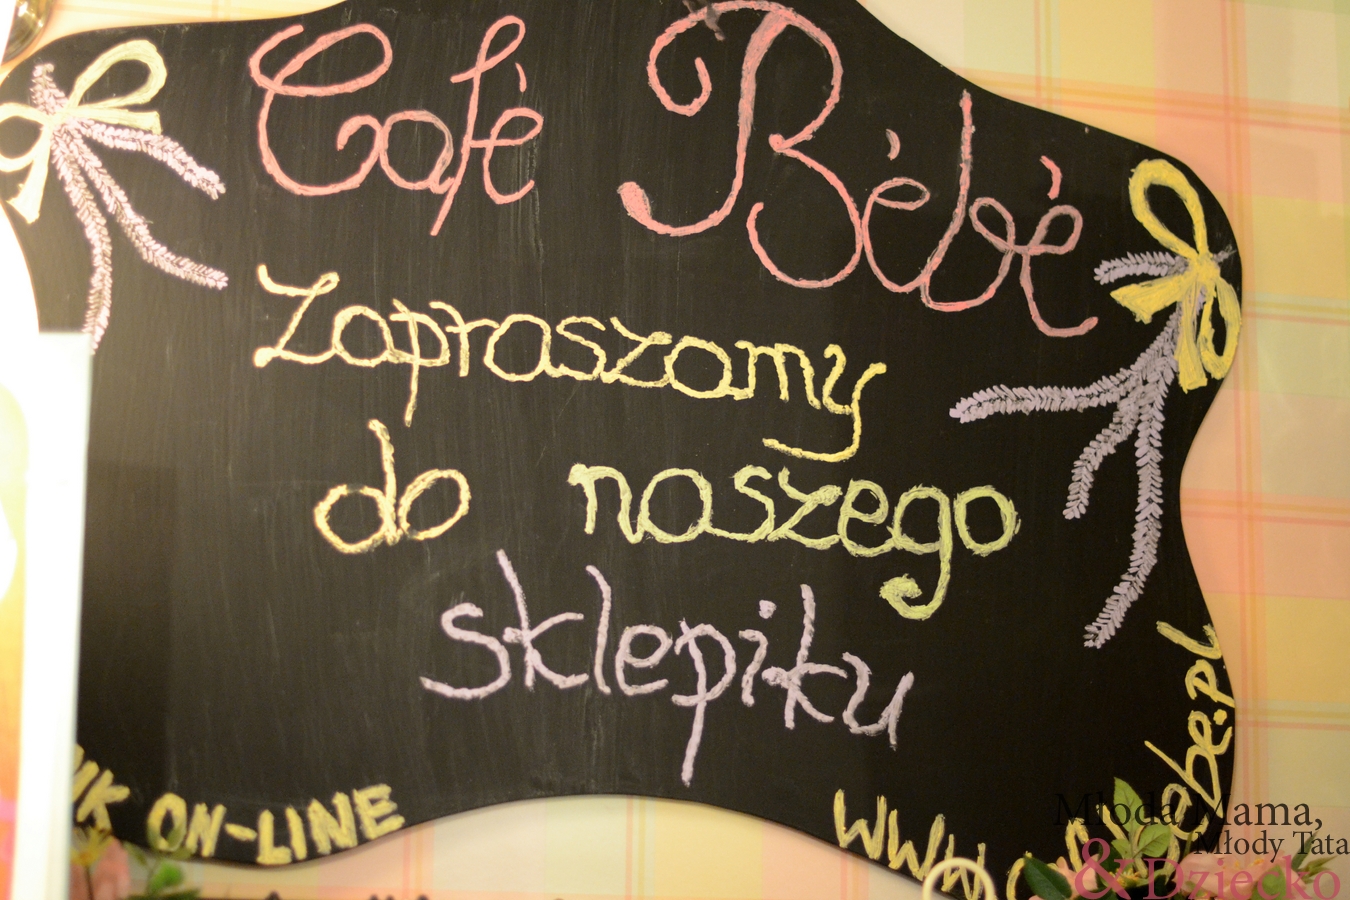 Cafè Bèbè
Zapraszamy
do naszego
sklepiku
ON-LINE
Młoda Mama,
Młody Tata
& Dziecko